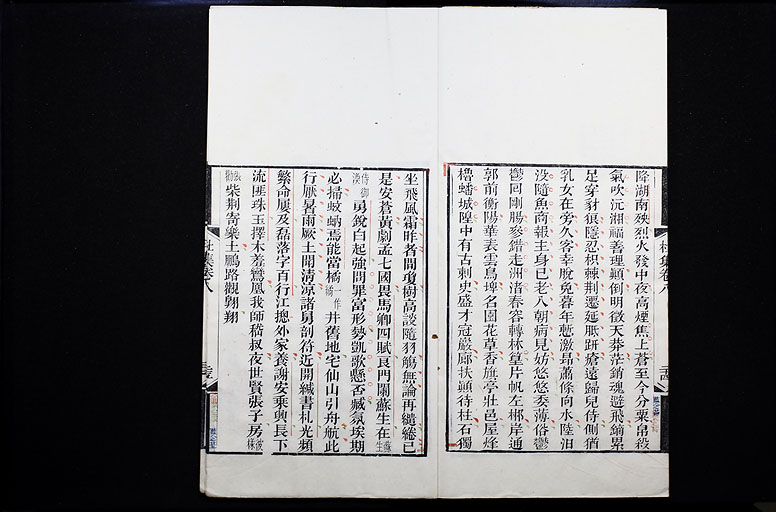 降湖南殃烈火發中夜高煙焦上蒼至今分粟帛殺
氣吹沅湘福善理顛倒明徵天莽茫銷魂避飛鏑累
足穿豺狼隱忍枳棘刺遷延胝趼瘡遠歸兒侍側猶
乳女在旁久客幸脫免暮年慙激昂蕭條向水陸汩
没隨魚商報主身已老入朝病見妨悠悠委薄俗鬱
鬱回剛腸參錯走洲渚舂容轉林篁片帆左郴岸通
郭前衡陽華表雲鳥埤名園花草香旗亭壯邑屋烽
櫓蟠城隍中有古刺史盛才冠巖廊扶顛待柱石獨
坐飛風霜昨者間瓊樹高談隨羽觴無論再繾綣已
是安蒼黃劇孟七國畏馬卿四賦良門闌蘇生在蘇生
侍御渙勇銳白起強問罪富形勢凱歌懸否臧氛埃期
必掃蚊蚋焉能當橘一作橘井舊地宅仙山引舟航此
行厭暑雨厥土聞清凉諸舅剖符近開緘書札光頻
繁命屢及磊落字百行江摠外家養謝安乘興長下
流匪珠玉擇木羞鸞凰我師嵇叔夜世賢張子房彼掾
張勸柴荆寄樂土鵬路觀翱翔
杜集卷八
杜集卷八